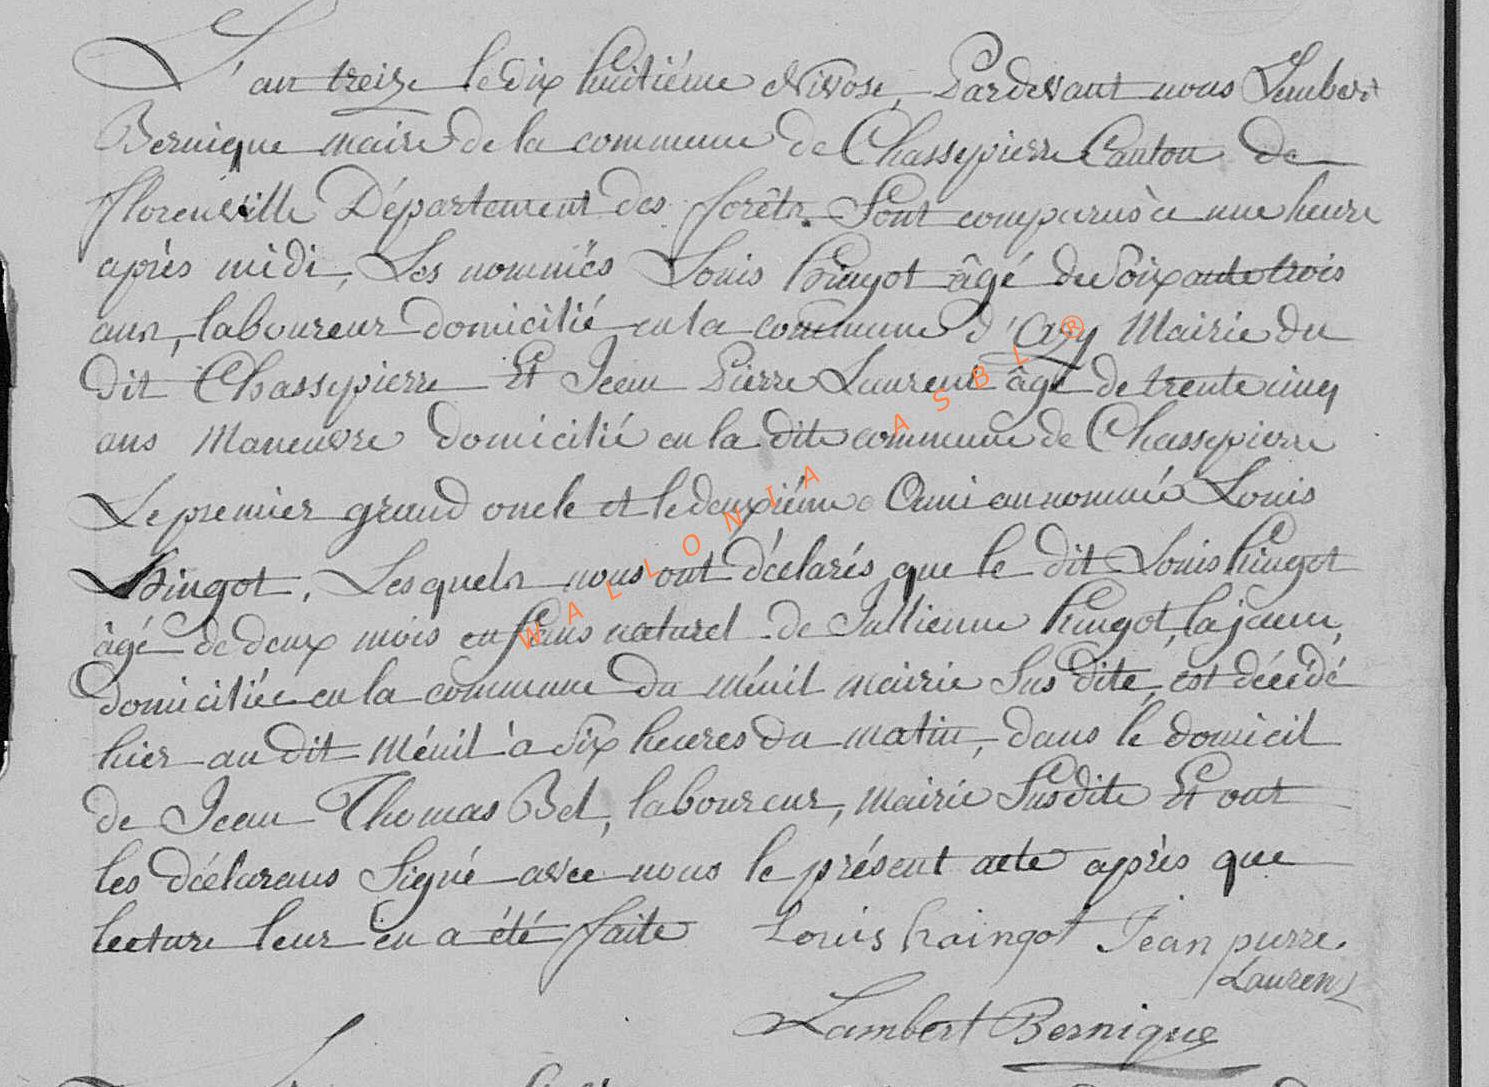 L'an treize le dix huitiéme Nivose, Pardevant nous Lambert
Bernique maire de la commune de Chassepierre Canton de
florenville Département des forêts. Sont comparus à une heure
après midi, Les nommés Louis hingot âgé de Soixante trois
ans, laboureur domicilié en la commune d'Azy Mairie du
dit Chassepierre Et Jean Pierre Laurent âgé de trente cinq
ans Maneuvre domicilié en la dite commune de Chassepierre
Le premier grand oncle et le deuxiéme Ami au nommé Louis
hingot, Lesquels nous ont déclarés que le dit Louis hingot
âgé de deux mois enfans naturel de Jullienne hingot, la jeune,
domiciliée en la commune du ménil mairie Sus dite, est décédé
hier au dit Ménil à Six heures du matin, dans le domicil
de Jean Thomas Bel, laboureur, Mairie Susdite Et ont
les déclarans Signé avec nous le présent acte après que
lecture leur en a été faite Louis haingot Jean pierre
Laurent
Lambert Bernique
WALLONIA ASBL ®